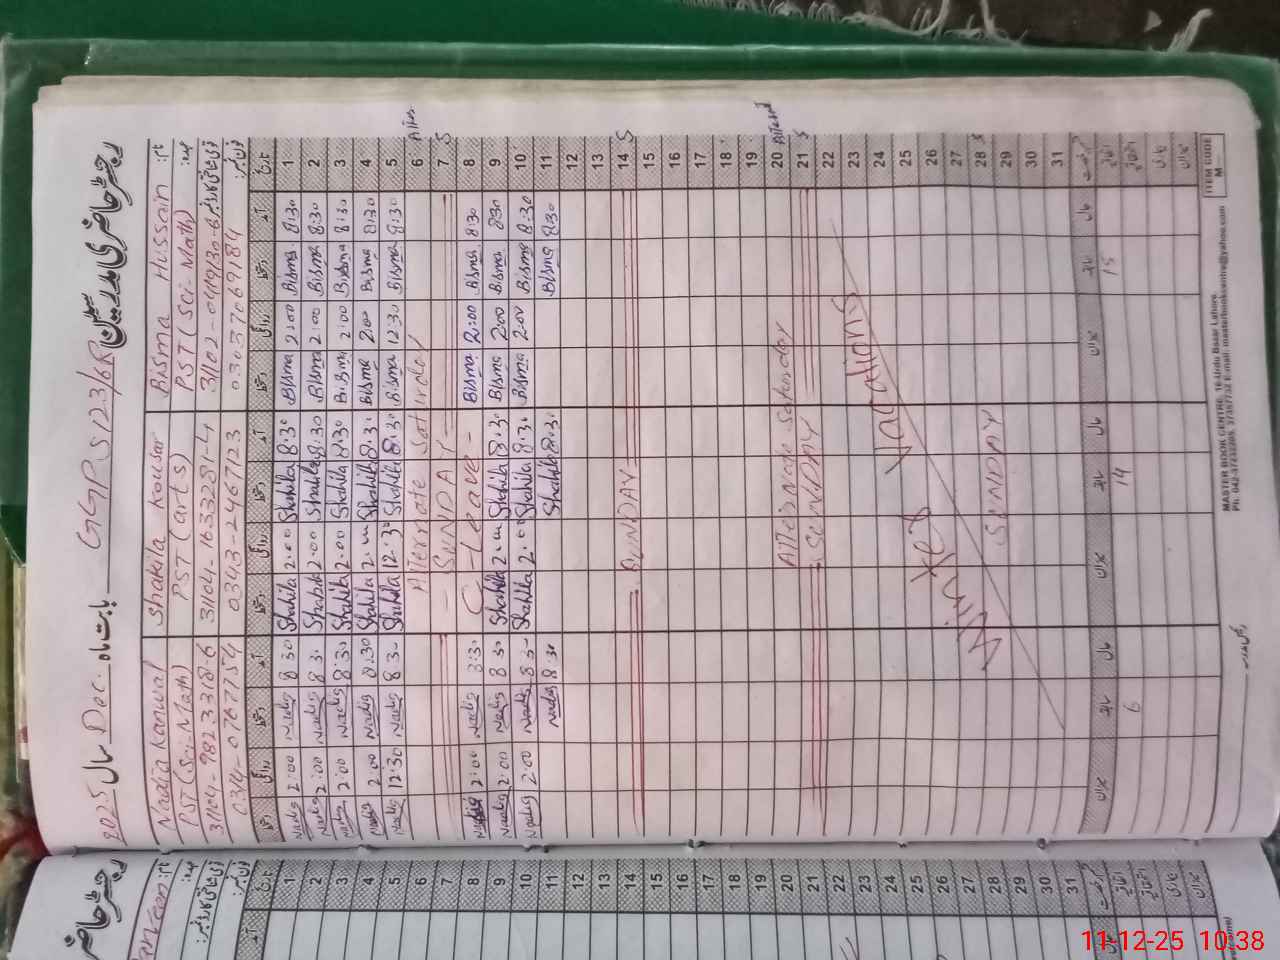 رجسٹر حاضری مدرسین GGPS 123/6R بابت ماہ Dec. سال 2025
نام: Bisma Hussain Shakila Kousar Nadia Kanwal
عہدہ: PST (Sci-Math) PST (arts) PST (Sci-Math)
31104-1633281-4 31104-9823318-6
03037069184 0343-2467123
تاریخ آمد دستخط روانگی دستخط آمد دستخط روانگی دستخط آمد دستخط روانگی دستخط
1 8:30 Bisma 2:00 Bisma 8:30 Shakila 2:00 Shakila 8:30 Nadia 2:00 Nadia
2 8:30 Bisma 2:00 Bisma 8:30 Shakila 2:00 Shakila 8:30 Nadia 2:00 Nadia
3 8:30 Bisma 2:00 Bisma 8:30 Shakila 2:00 Shakila 8:30 Nadia 2:00 Nadia
4 8:30 Bisma 2:00 Bisma 8:30 Shakila 2:00 Shakila 8:30 Nadia 2:00 Nadia
5 8:30 Bisma 12:30 Bisma 8:30 Shakila 12:30 Shakila 8:30 Nadia 12:30 Nadia
6 Alternate Saturday
7 S SUNDAY
8 8:30 Bisma 2:00 Bisma C-Leave 8:30 Nadia 2:00 Nadia
9 8:30 Bisma 2:00 Bisma 8:30 Shakila 2:00 Shakila 8:30 Nadia 2:00 Nadia
10 8:30 Bisma 2:00 Bisma 8:30 Shakila 2:00 Shakila 8:30 Nadia 2:00 Nadia
11 8:30 Bisma 8:30 Shakila 8:30 Nadia
12
13
14 S SUNDAY
15
16
17
18
19
20 Alternate Saturday
21 S SUNDAY
22
23
24
25
26
27
28 S SUNDAY
29
30
31
Winter Vacations
15 14 6
ITEM CODE
M—
MASTER BOOK CENTRE, 16-Urdu Bazar Lahore.
Ph: 042-37232369, 37357732 E-mail: masterbookcentre@yahoo.com
رجسٹر حاضری
نام:
عہدہ:
تاریخ
آمد
1
2
3
4
5
6
7
8
9
10
11
12
13
14
15
16
17
18
19
20
21
22
23
24
25
26
27
28
29
30
31
11-12-25 10:38